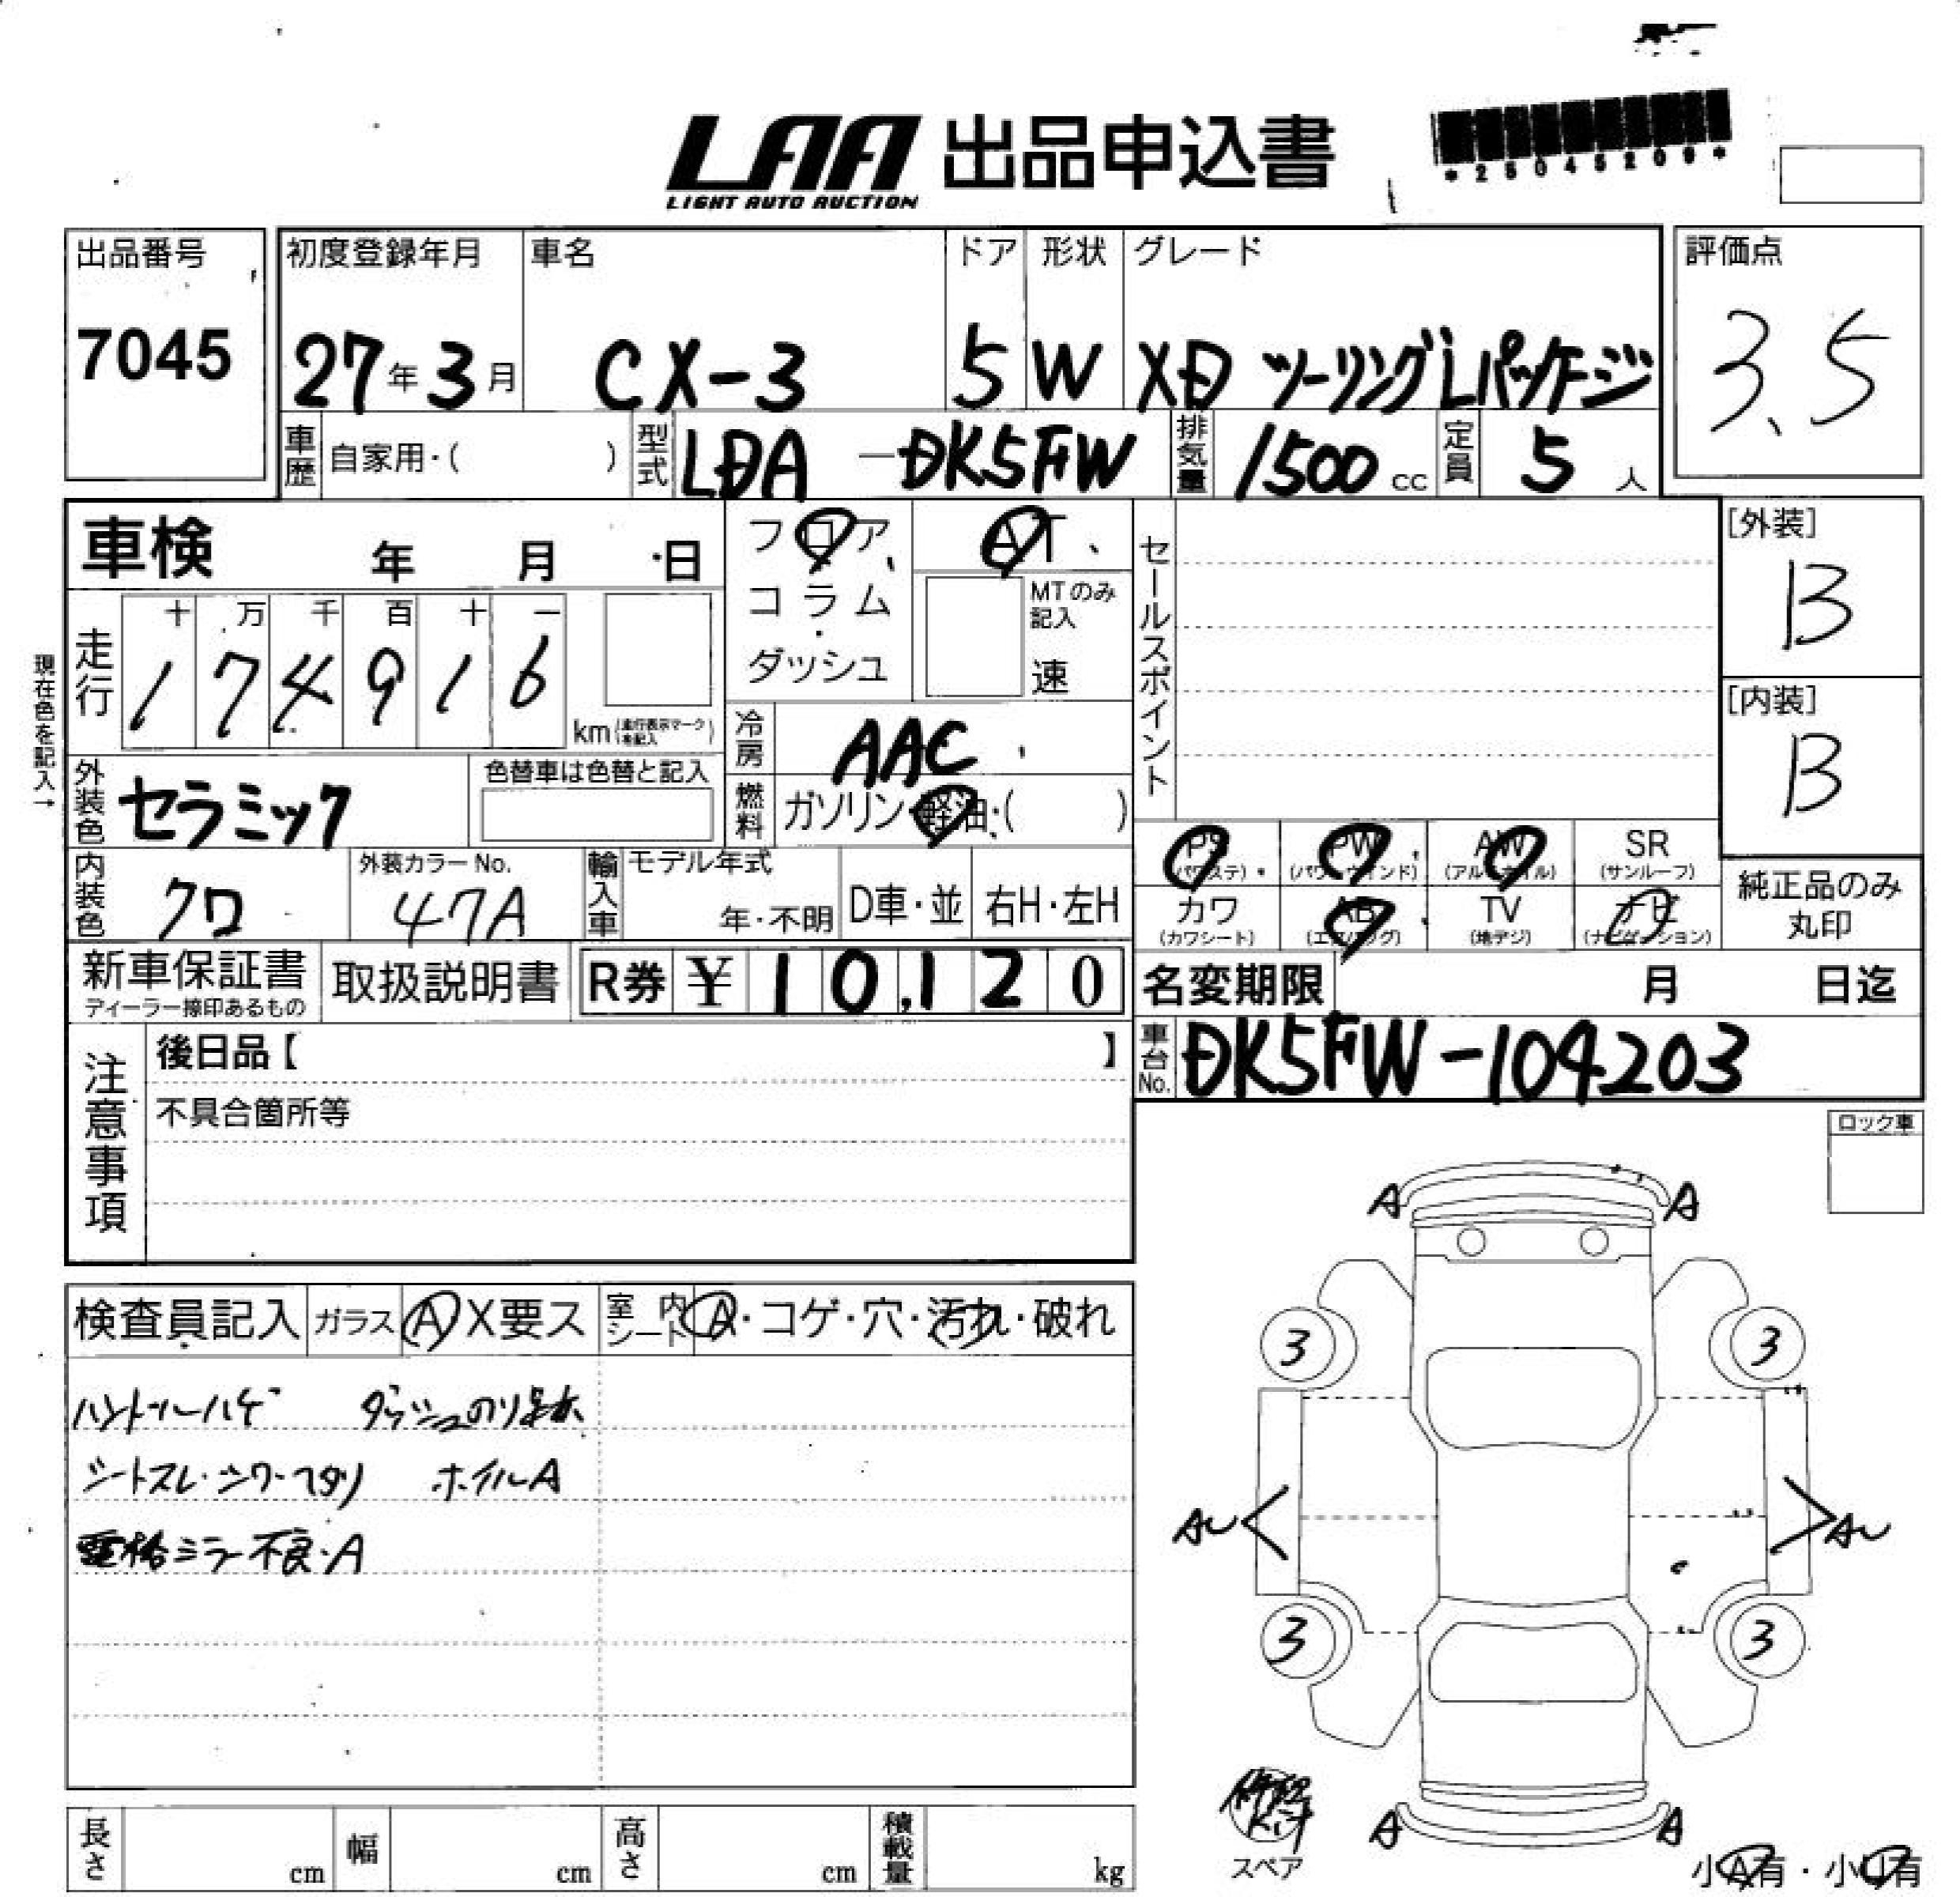 LAA 出品申込書
LIGHT AUTO AUCTION
*25045209*
出品番号
7045
初度登録年月
27年3月
車名
CX-3
ドア
5
形状
W
グレード
XD ツーリングLパッケージ
評価点
3.5
車歴 自家用・( )
型式 LDA-DK5FW
排気量 1500cc
定員 5人
車検 年 月 日
フロア、
コラム・
ダッシュ
AT、
MTのみ記入
速
セールスポイント
[外装]
B
[内装]
B
現在色を記入→
走行
十 万 千 百 十 一
1 7 4 9 1 6
km(走行表示マークを記入)
冷房 AAC
外装色 セラミック
色替車は色替と記入
燃料 ガソリン・軽油・( )
PS (パワステ)
PW (パワーウインド)
AW (アルミホイル)
SR (サンルーフ)
カワ (カワシート)
AB (エアバッグ)
TV (地デジ)
ナビ (ナビゲーション)
純正品のみ丸印
内装色 クロ
外装カラーNo. 47A
輸入車
モデル年式 年・不明
D車・並
右H・左H
新車保証書
ディーラー捺印あるもの
取扱説明書
R券 ¥10,120
名変期限 月 日迄
車台No. DK5FW-104203
注意事項
後日品【 】
不具合箇所等
ロック車
検査員記入
ガラス A X要ス
室内シート A・コゲ・穴・汚れ・破れ
ハンドルハゲ ダッシュのり跡
シートスレ・シワ・ヘタリ ホイルA
電格ミラー不良・A
A A
3 3
AU AU
3 3
A A
修理キット
スペア
小A有・小U有
長さ cm
幅 cm
高さ cm
積載量 kg